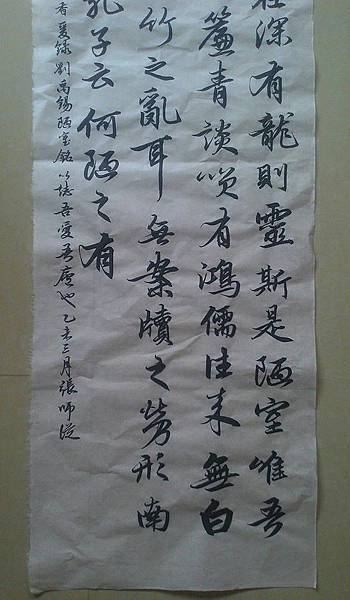 在深有龍則靈斯是陋室唯吾
簾青談笑有鴻儒往来無白
竹之亂耳無案牘之勞形南
孔子云何陋之有
劉禹錫陋室銘以誌吾愛吾廬也乙未三月張師